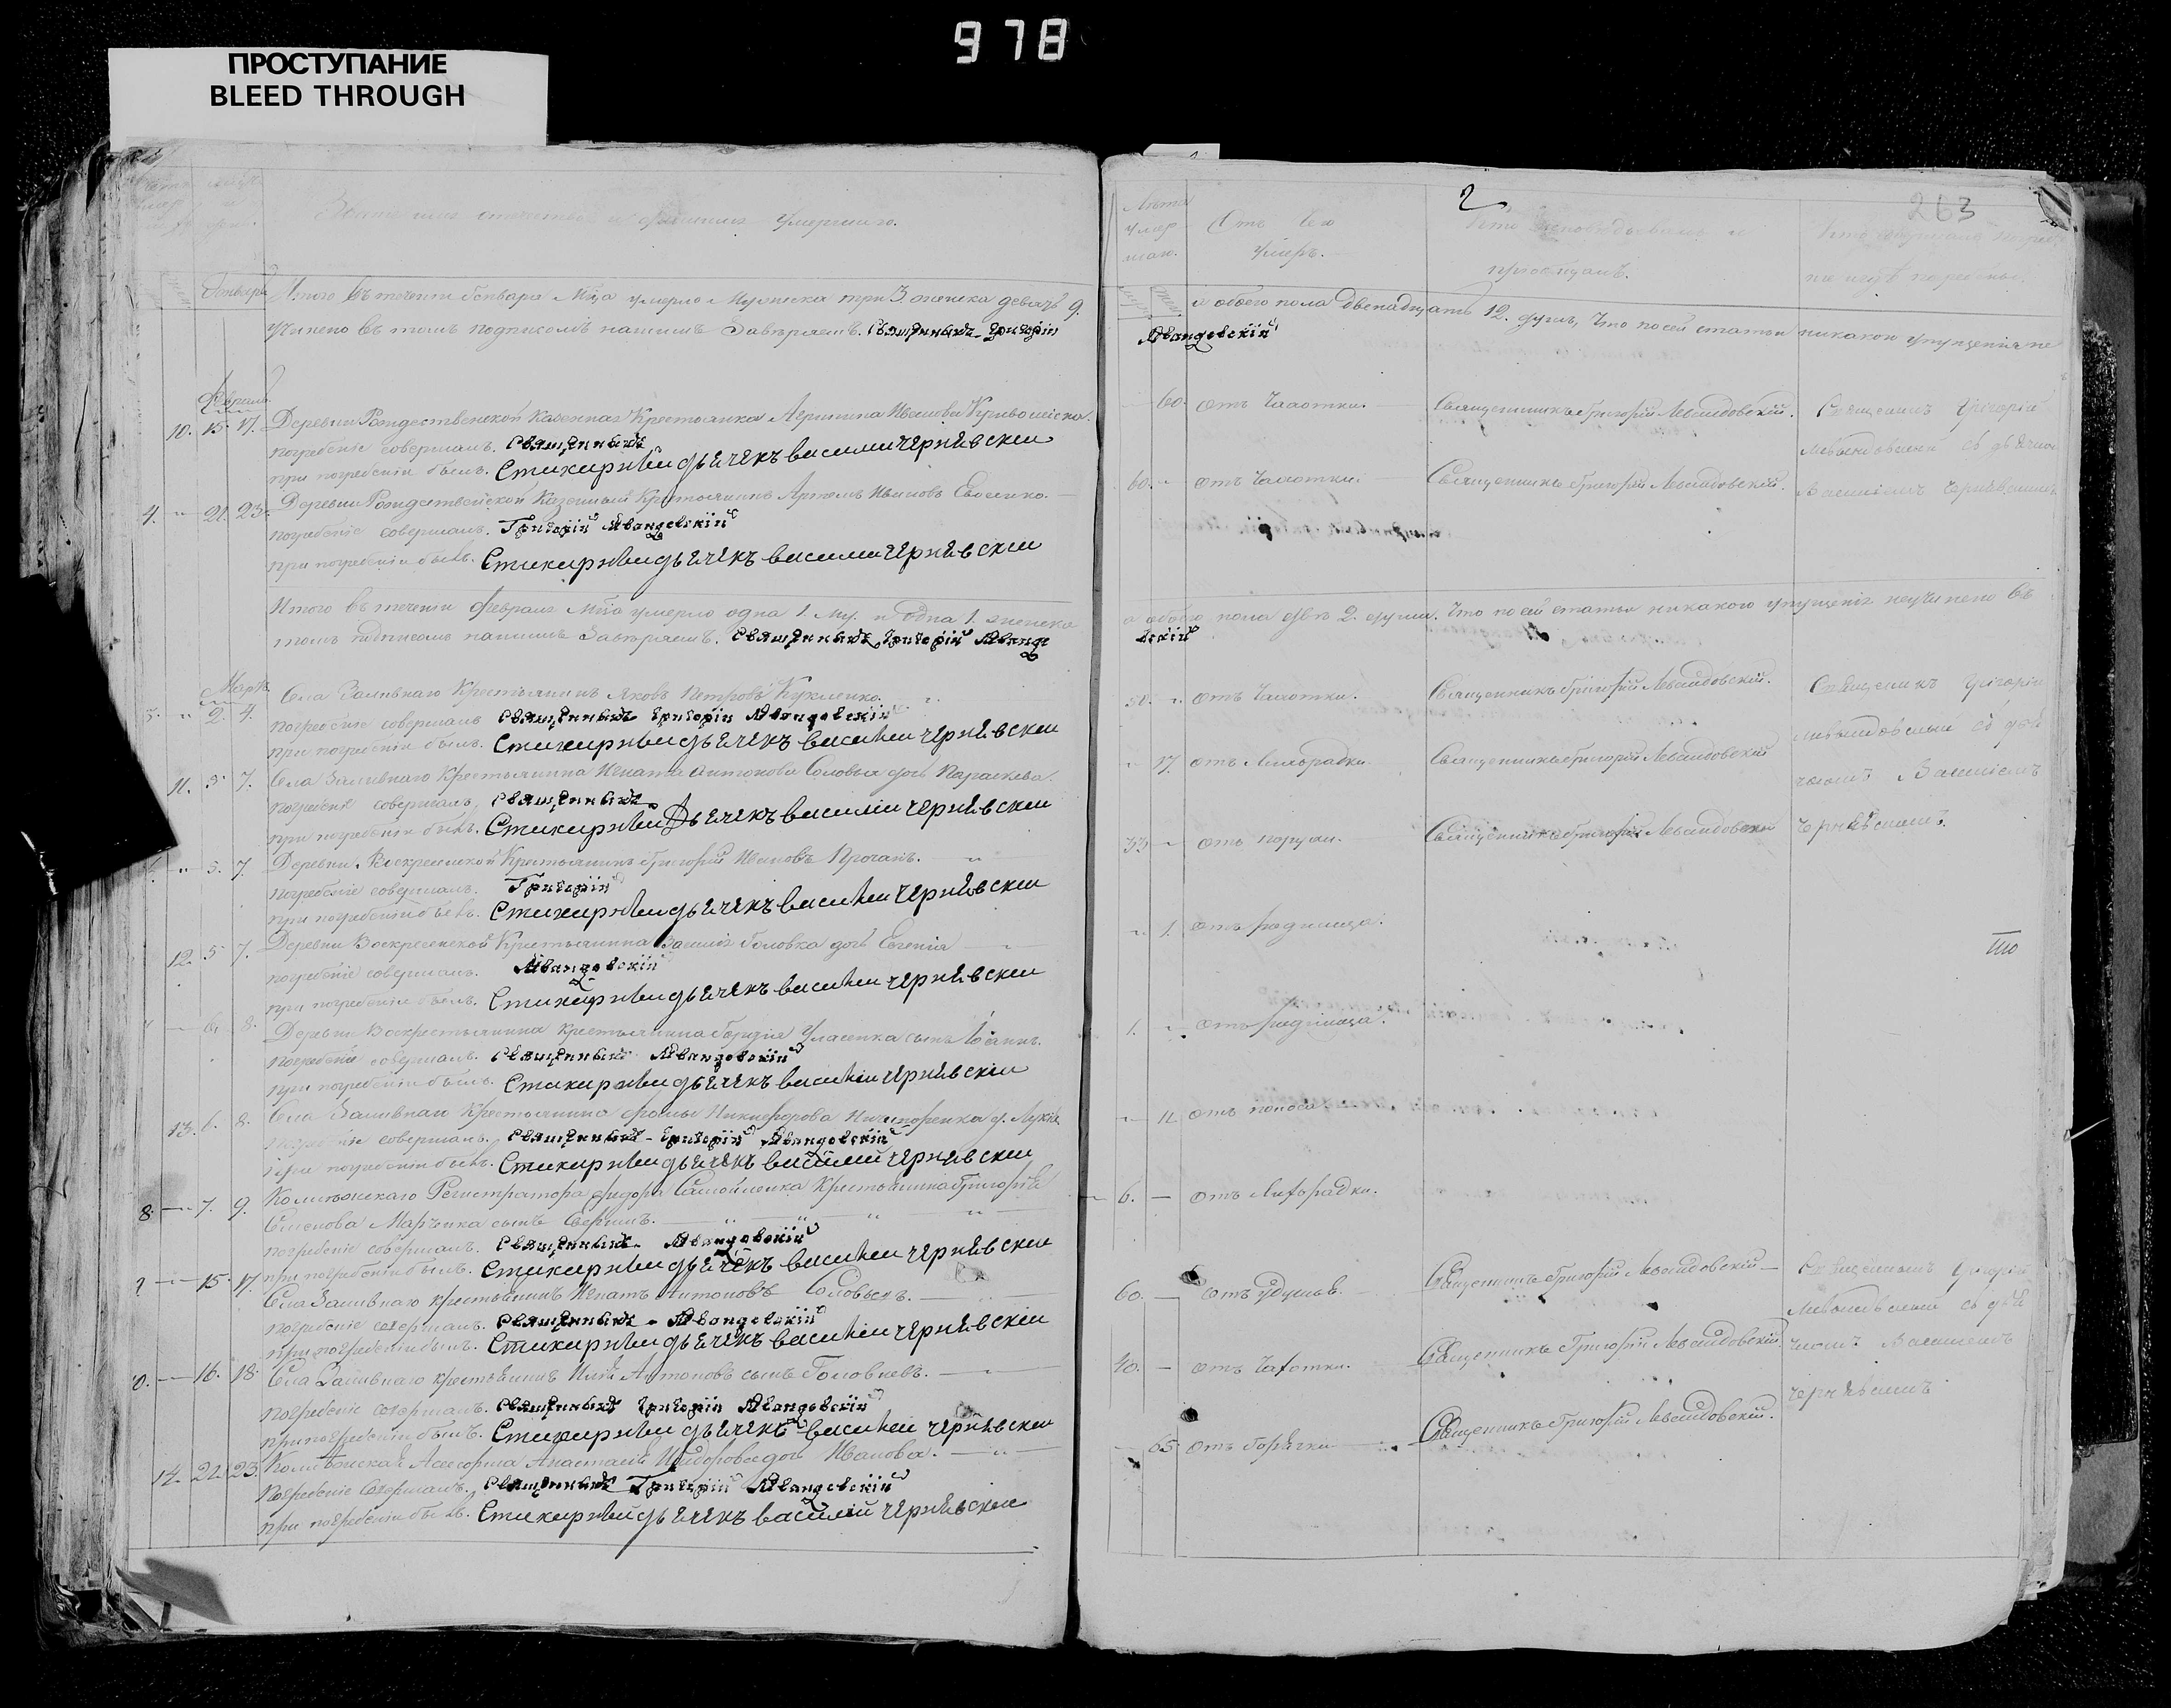 978
ПРОСТУПАНИЕ
BLEED THROUGH
Званіе имя отечество и фамилія умершаго.
Генварь
Итого въ теченіи Генваря м-ца умерло Мужеска три 3. женска девять 9.
Учинено въ томъ подписомъ нашимъ Завѣряемъ. Священникъ Григорій
Февраль
10. 15. 17. Деревни Рождественской Казенная Крестьянка Агрипина Иванова
погребеніе совершалъ. Священникъ
при погребеніи былъ. Стихирный дьячекъ василий чернѣвский
4. 21. 23. Деревни Рождественской Казенный Крестьянинъ Артемъ Ивановъ
погребеніе совершалъ. Григорій Левандовскій
при погребеніи былъ. Стихирный дьячекъ василий чернѣвский
Итого въ теченіи Февраля м-ца умерло одна 1. му. и одна 1. женска
томъ подписомъ нашимъ Завѣряемъ. Священникъ Григорій Леванд
Мартъ
2. 4. Села Заливнаго Крестьянинъ Яковъ Петровъ
погребеніе совершалъ Священникъ Григорій Левандовскій
при погребеніи былъ. Стихирный дьячекъ василий чернѣвский
11. 5. 7. Села Заливнаго Крестьянина Игната Антонова Соловья дочь Параскева.
погребеніе совершалъ, Священникъ
при погребеніи былъ. Стихирный Дьячекъ василій чернѣвский
5. 7. Деревни Воскресенской Крестьянинъ Григорій Ивановъ
погребеніе совершалъ. Григорій
при погребеніи былъ. Стихирный дьячекъ василий чернѣвский
12. 5. 7. Деревни Воскресенской Крестьянина Василія Головка дочь Евгенія
погребеніе совершалъ. Левандовскій
при погребеніи былъ. Стихирный дьячекъ василий чернѣвский
6. 8. Деревни крестьянина Уласенка сынъ Іоаннъ.
погребеніе совершалъ. Священникъ Левандовскій
при погребеніи былъ. Стихирный дьячекъ василий чернѣвский
13. 6. 8. Села Заливнаго Крестьянина Фомы Никифорова Ничипоренка д. Лукія
погребеніе совершалъ. Священникъ Григорій Левандовскій
при погребеніи былъ. Стихирный дьячекъ василий чернѣвский
8. 7. 9. Колежскаго Регистратора Федора Самойленка Крестьянина Григорія
Семенова Марченка сынъ
погребеніе совершалъ. Священникъ Левандовскій
15. 17. при погребеніи былъ. Стихирный дьячекъ василий чернѣвский
Села Заливнаго крестьянинъ Игнатъ Антоновъ Соловьевъ.
погребеніе совершалъ. Священникъ Левандовскій
при погребеніи былъ. Стихирный дьячекъ василий чернѣвскій
16. 18. Села Заливнаго крестьянинъ Антоновъ сынъ
погребеніе совершалъ. Священникъ Григорій Левандовскій
при погребеніи былъ. Стихирный дьячекъ василий чернѣвский
14. 21. 23. Анастасія дочь Иванова.
погребеніе совершалъ. Священникъ Григорій Левандовскій
при погребеніи былъ. Стихирный дьячекъ василий чернѣвский
2
263
Лѣта умершаго.
Отъ чего умеръ.
Кто исповѣдывалъ и пріобщалъ.
и обоего пола двенадцать 12. душъ, Что по сей статьи никакого упущенія не
Левандовскій
60. отъ Чахотки. Священникъ Григорій Левандовскій. Священникъ Григорій
Левандовскій съ дьячкомъ
60. отъ Чахотки. Священникъ Григорій Левандовскій. Василіемъ Чернѣвскимъ
а обоего пола двѣ 2. души. Что по сей статьи никакого упущенія неучинено въ
вскій
50. отъ Чахотки. Священникъ Григорій Левандовскій. Священникъ Григорій
Левандовскій съ дья
17. отъ Лихорадки. Священникъ Григорій Левандовскій чкомъ Василіемъ
33. отъ Священникъ Григорій Левандовскій Чернѣвскимъ.
1. отъ родимца.
1. отъ родимца.
11. отъ поноса
6. отъ Лихорадки.
60. отъ удушья. Священникъ Григорій Левандовскій Священникъ Григорій
Левандовскій съ дья
40. отъ Чахотки. Священникъ Григорій Левандовскій. чкомъ Василіемъ
Чернѣвскимъ
65. отъ Горячки Священникъ Григорій Левандовскій.